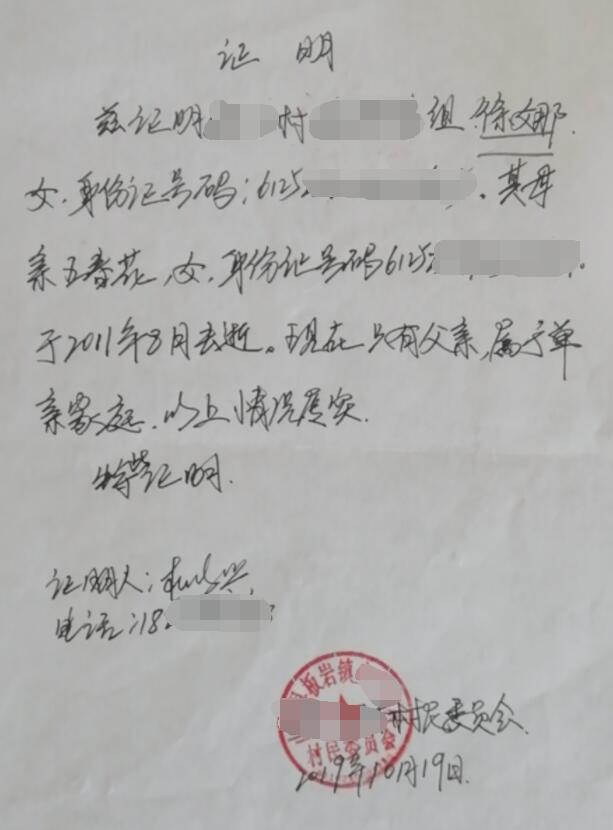 证 明
兹证明 村 组 徐文娜.
女.身份证号码:6125 .其母
亲王春花,女,身份证号码6125 .
于2011年8月去逝。现在只有父亲,属于单
亲家庭.以上情况属实.
特此证明.
证明人:
电话:18
板岩镇
村民委员会
村民委员会
2019年10月19日.